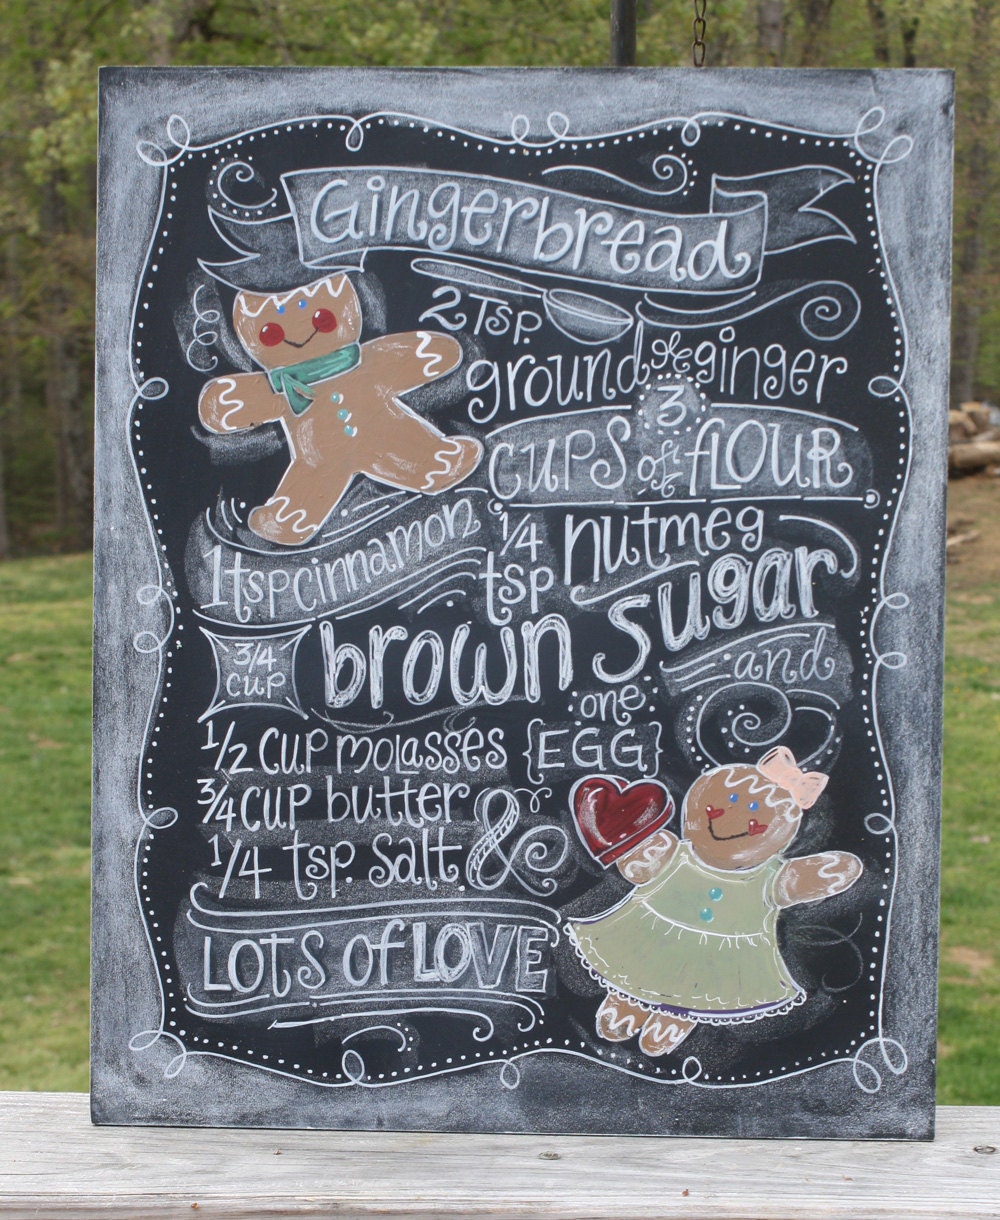 Gingerbread
2 Tsp.
ground ginger
3
CUPS of FLOUR
1 tsp cinnamon
1/4 tsp nutmeg
3/4 cup brown sugar
and
one
{EGG}
1/2 cup molasses
3/4 cup butter
1/4 tsp. salt &
LOTS OF LOVE